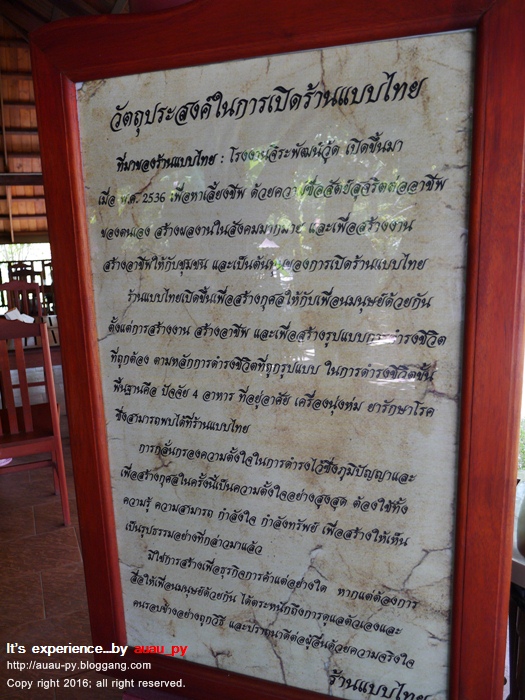 วัตถุประสงค์ในการเปิดร้านแบบไทย
ที่มาของร้านแบบไทย : โรงงานจิระพัฒน์วู้ด เปิดขึ้นมา
เมื่อ พ.ศ. 2536 เพื่อหาเลี้ยงชีพ ด้วยความซื่อสัตย์สุจริตต่ออาชีพ
ของตนเอง สร้างผลงานในสังคมมากมาย และเพื่อสร้างงาน
สร้างอาชีพให้กับชุมชน และเป็นต้นทุนของการเปิดร้านแบบไทย
ร้านแบบไทยเปิดขึ้นเพื่อสร้างกุศลให้กับเพื่อนมนุษย์ด้วยกัน
ตั้งแต่การสร้างงาน สร้างอาชีพ และเพื่อสร้างรูปแบบการดำรงชีวิต
ที่ถูกต้อง ตามหลักการดำรงชีวิตที่ถูกรูปแบบ ในการดำรงชีวิตขั้น
พื้นฐานคือ ปัจจัย 4 อาหาร ที่อยู่อาศัย เครื่องนุ่งห่ม ยารักษาโรค
ซึ่งสามารถพบได้ที่ร้านแบบไทย
การกลั่นกรองความตั้งใจในการดำรงไว้ซึ่งภูมิปัญญาและ
เพื่อสร้างกุศลในครั้งนี้เป็นความตั้งใจอย่างสูงสุด ต้องใช้ทั้ง
ความรู้ ความสามารถ กำลังใจ กำลังทรัพย์ เพื่อสร้างให้เห็น
เป็นรูปธรรมอย่างที่กล่าวมาแล้ว
มิใช่การสร้างเพื่อธุรกิจการค้าแต่อย่างใด หากแต่ต้องการ
สื่อให้เพื่อนมนุษย์ด้วยกัน ได้ตระหนักถึงการดูแลตัวเองและ
คนรอบข้างอย่างถูกวิธี และปรารถนาดีต่อผู้อื่นด้วยความจริงใจ
ร้านแบบไทย
It's experience...by auau_py
http://auau-py.bloggang.com
Copy right 2016; all right reserved.